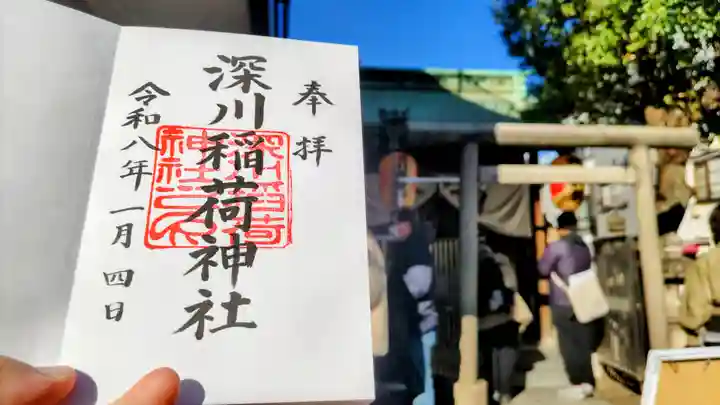 奉拝
深川稲荷神社
令和八年一月四日
深川稲荷
神社之印